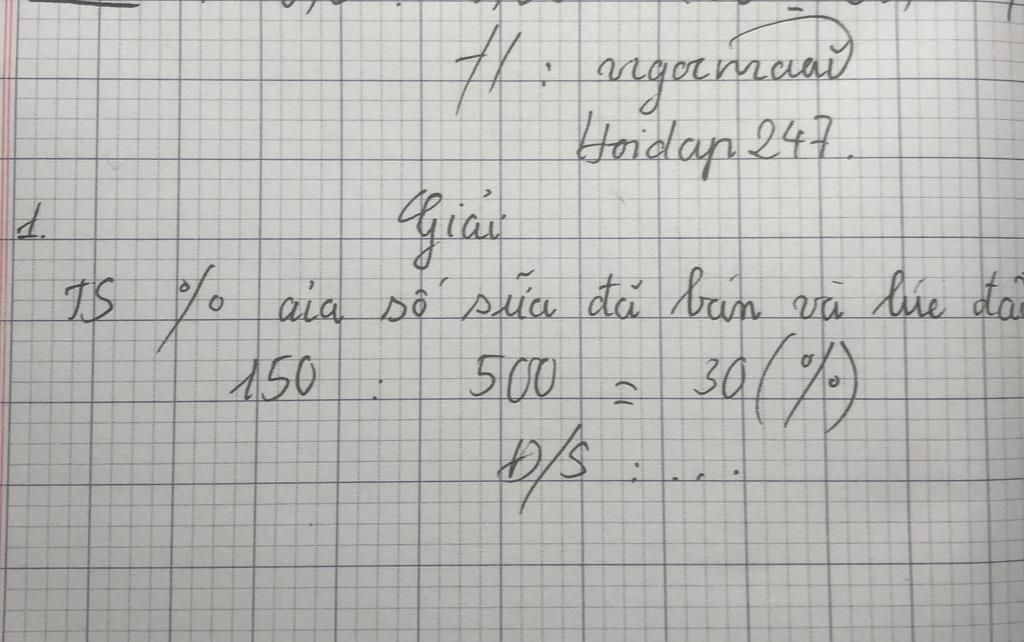 : ngocmaaii
Hoidap 247.
1. Giải
TS % của số sữa đã bán và lúc đầ
150 : 500 = 30 (%)
Đ/S : ...